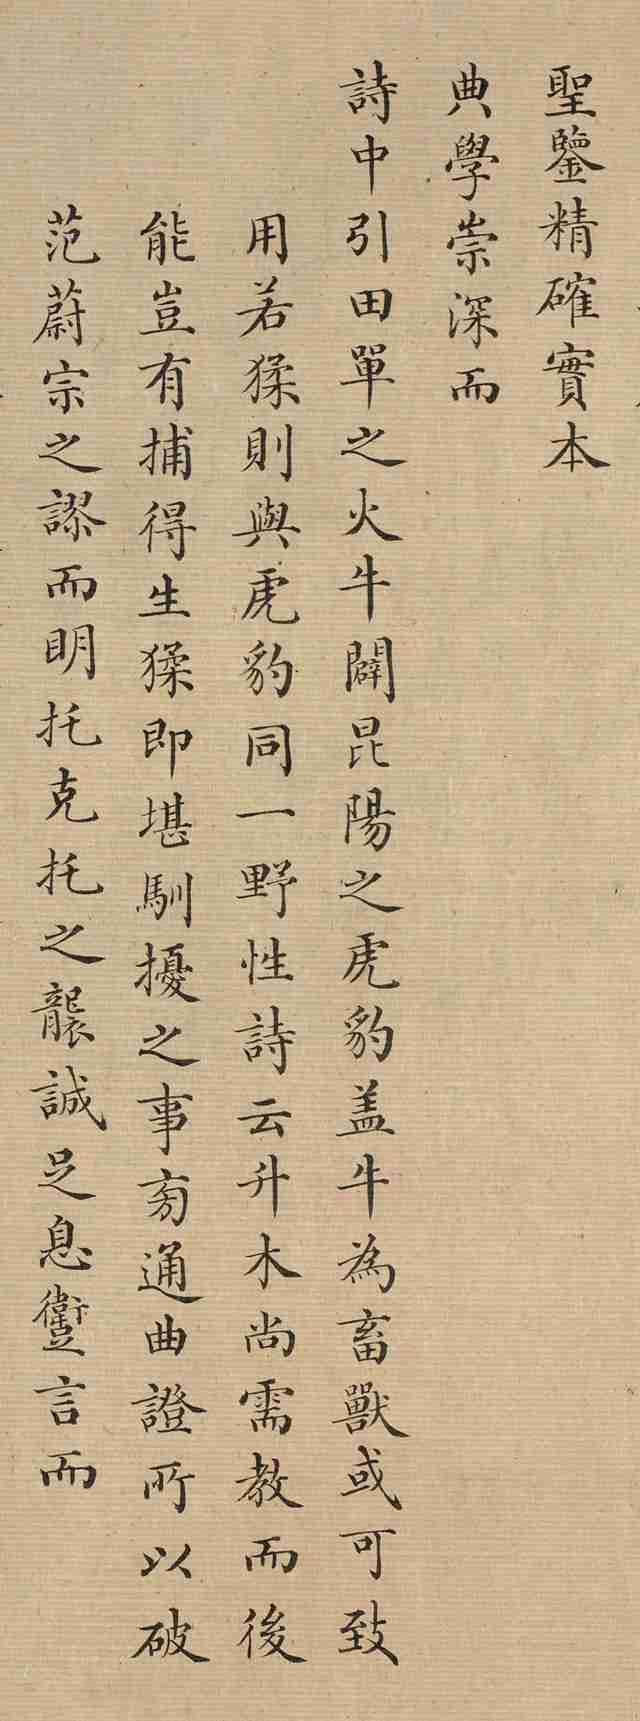 聖鑒精確實本
典學崇深而
詩中引田單之火牛闢昆陽之虎豹盖牛為畜獸或可致
用若猱則與虎豹同一野性詩云升木尚需教而後
能豈有捕得生猱即堪馴擾之事旁通曲證所以破
范蔚宗之謬而明托克托之襲誠足息躗言而